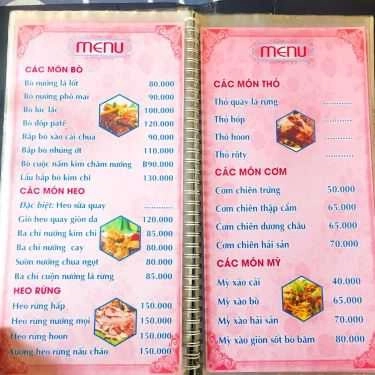 MENU
CÁC MÓN BÒ
Bò nướng lá lốt 80.000
Bò nướng phô mai 90.000
Bò lúc lắc 100.000
Bò đớp patê 120.000
Bắp bò xào cải chua 90.000
Bắp bò nhúng ớt 110.000
Bò cuộc nấm kim châm nướng B90.000
Lẩu bắp bò kim chi 130.000
CÁC MÓN HEO
Đặc biệt: Heo sữa quay ............
Giò heo quay giòn da 120.000
Ba chỉ nướng kim chi 85.000
Ba chỉ nướng cay 80.000
Sườn nướng chua ngọt 80.000
Ba chỉ cuộn nướng lá rừng 85.000
HEO RỪNG
Heo rừng hấp 150.000
Heo rừng nướng mọi 150.000
Heo rừng hoon 150.000
Xương heo rừng nấu cháo 150.000
MENU
CÁC MÓN THỎ
Thỏ quay lá rừng ............
Thỏ bóp ............
Thỏ hoon ............
Thỏ rôty ............
CÁC MÓN CƠM
Cơm chiên trứng 50.000
Cơm chiên thập cẩm 65.000
Cơm chiên dương châu 65.000
Cơm chiên hải sản 70.000
CÁC MÓN MỲ
Mỳ xào cải 40.000
Mỳ xào bò 65.000
Mỳ xào hải sản 70.000
Mỳ xào giòn sốt bò bằm 80.000